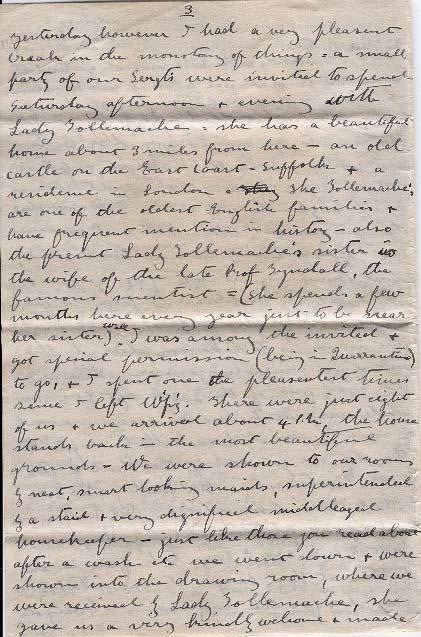 3
yesterday however I had a very pleasent
break in the monotony of things = a small
party of our Sergts were invited to spend
Saturday afternoon & evening with
Lady Tollemache = she has a beautiful
home about 3 miles from here - an old
castle on the East Coast - Suffolk & a
residence in London. The Tollemache's
are one of the oldest English families &
have frequent mention in history - also
the present Lady Tollemache's sister is
the wife of the late Prof Tyndall, the
famous scientist = (she spends a few
months here every year just to be near
her sister). I was among the invited &
got special permission (being in Quarantine)
to go, & I spent one the pleasentest times
since I left W'p'g. There were just eight
of us & we arrived about 4 P.M, the house
stands back in the most beautiful
grounds - We were shown to our rooms
by neat, smart looking maids, superintended
by a staid & very dignified middleaged
housekeeper - just like those you read about
after a wash etc we went down & were
shown into the drawing room, where we
were received by Lady Tollemache, she
gave us a very kindly welcome & made